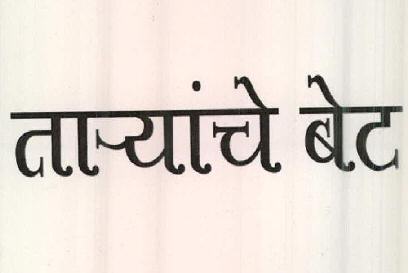 ताऱ्यांचे बेट